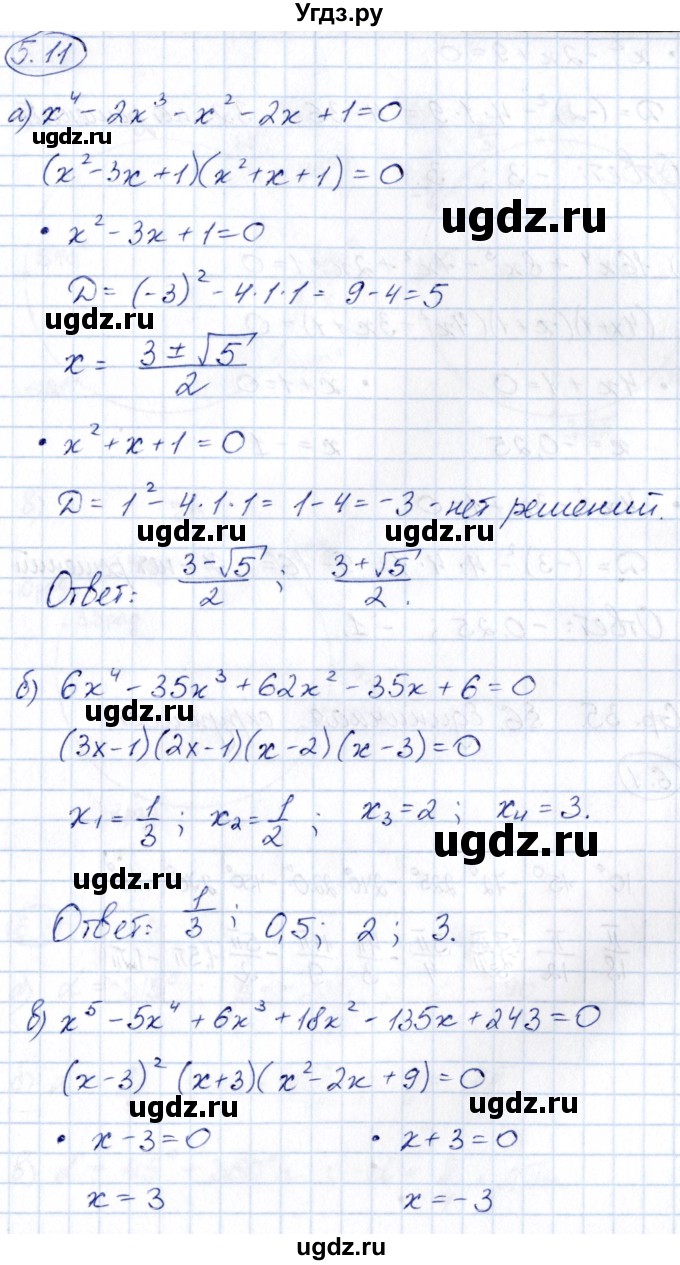 Угдз.ру
5.11
а) x⁴ - 2x³ - x² - 2x + 1 = 0
ugdz.ru
(x² - 3x + 1)(x² + x + 1) = 0
ugdz.ru
• x² - 3x + 1 = 0
Д = (-3)² - 4·1·1 = 9 - 4 = 5
ugdz.ru
x = (3 ± √5)/2
• x² + x + 1 = 0
Д = 1² - 4·1·1 = 1 - 4 = -3 - нет решений.
ugdz.ru ugdz.ru
Ответ: (3 - √5)/2 ; (3 + √5)/2 .
б) 6x⁴ - 35x³ + 62x² - 35x + 6 = 0
ugdz.ru
(3x - 1)(2x - 1)(x - 2)(x - 3) = 0
x₁ = 1/3 ; x₂ = 1/2 ; x₃ = 2 ; x₄ = 3.
ugdz.ru
ugdz.ru
Ответ: 1/3 ; 0,5 ; 2 ; 3.
в) x⁵ - 5x⁴ + 6x³ + 18x² - 135x + 243 = 0
(x - 3)² (x + 3)(x² - 2x + 9) = 0
ugdz.ru ugdz.ru
• x - 3 = 0 • x + 3 = 0
x = 3 x = -3
ugdz.ru